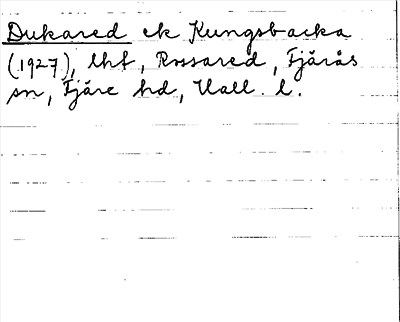 Dukared ek Kungsbacka
(1927), lht, Rossared, Fjärås
sn, Fjäre hd, Hall. l.